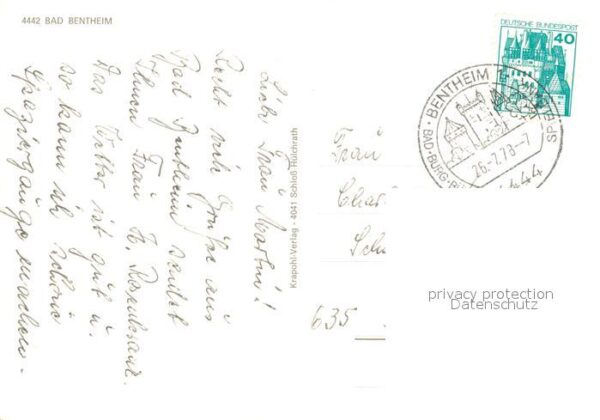 4442 BAD BENTHEIM
Liebe Frau Martin!
Recht viele Grüße aus
Bad Bentheim sendet
Ihnen Frau A.
Das Wetter ist gut u.
so kann ich schöne
Spaziergänge machen.
Krapohl-Verlag · 4041 Schloß Hülchrath
DEUTSCHE BUNDESPOST
40
BENTHEIM 1
BAD·BURG·
26.-7.78-7
4444
Frau
635
privacy protection
Datenschutz